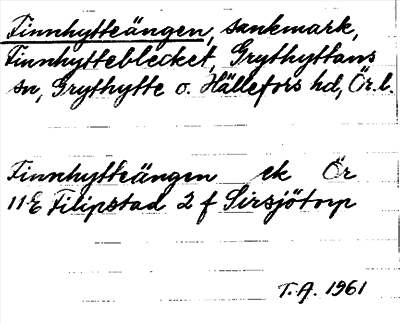 Finnhytteängen, sankmark,
Finnhytteblecket, Grythyttans
sn, Grythytte o. Hällefors hd, Ör. l.
Finnhytteängen ek Ör
11E Filipstad 2 f Sirsjötorp
T.A. 1961